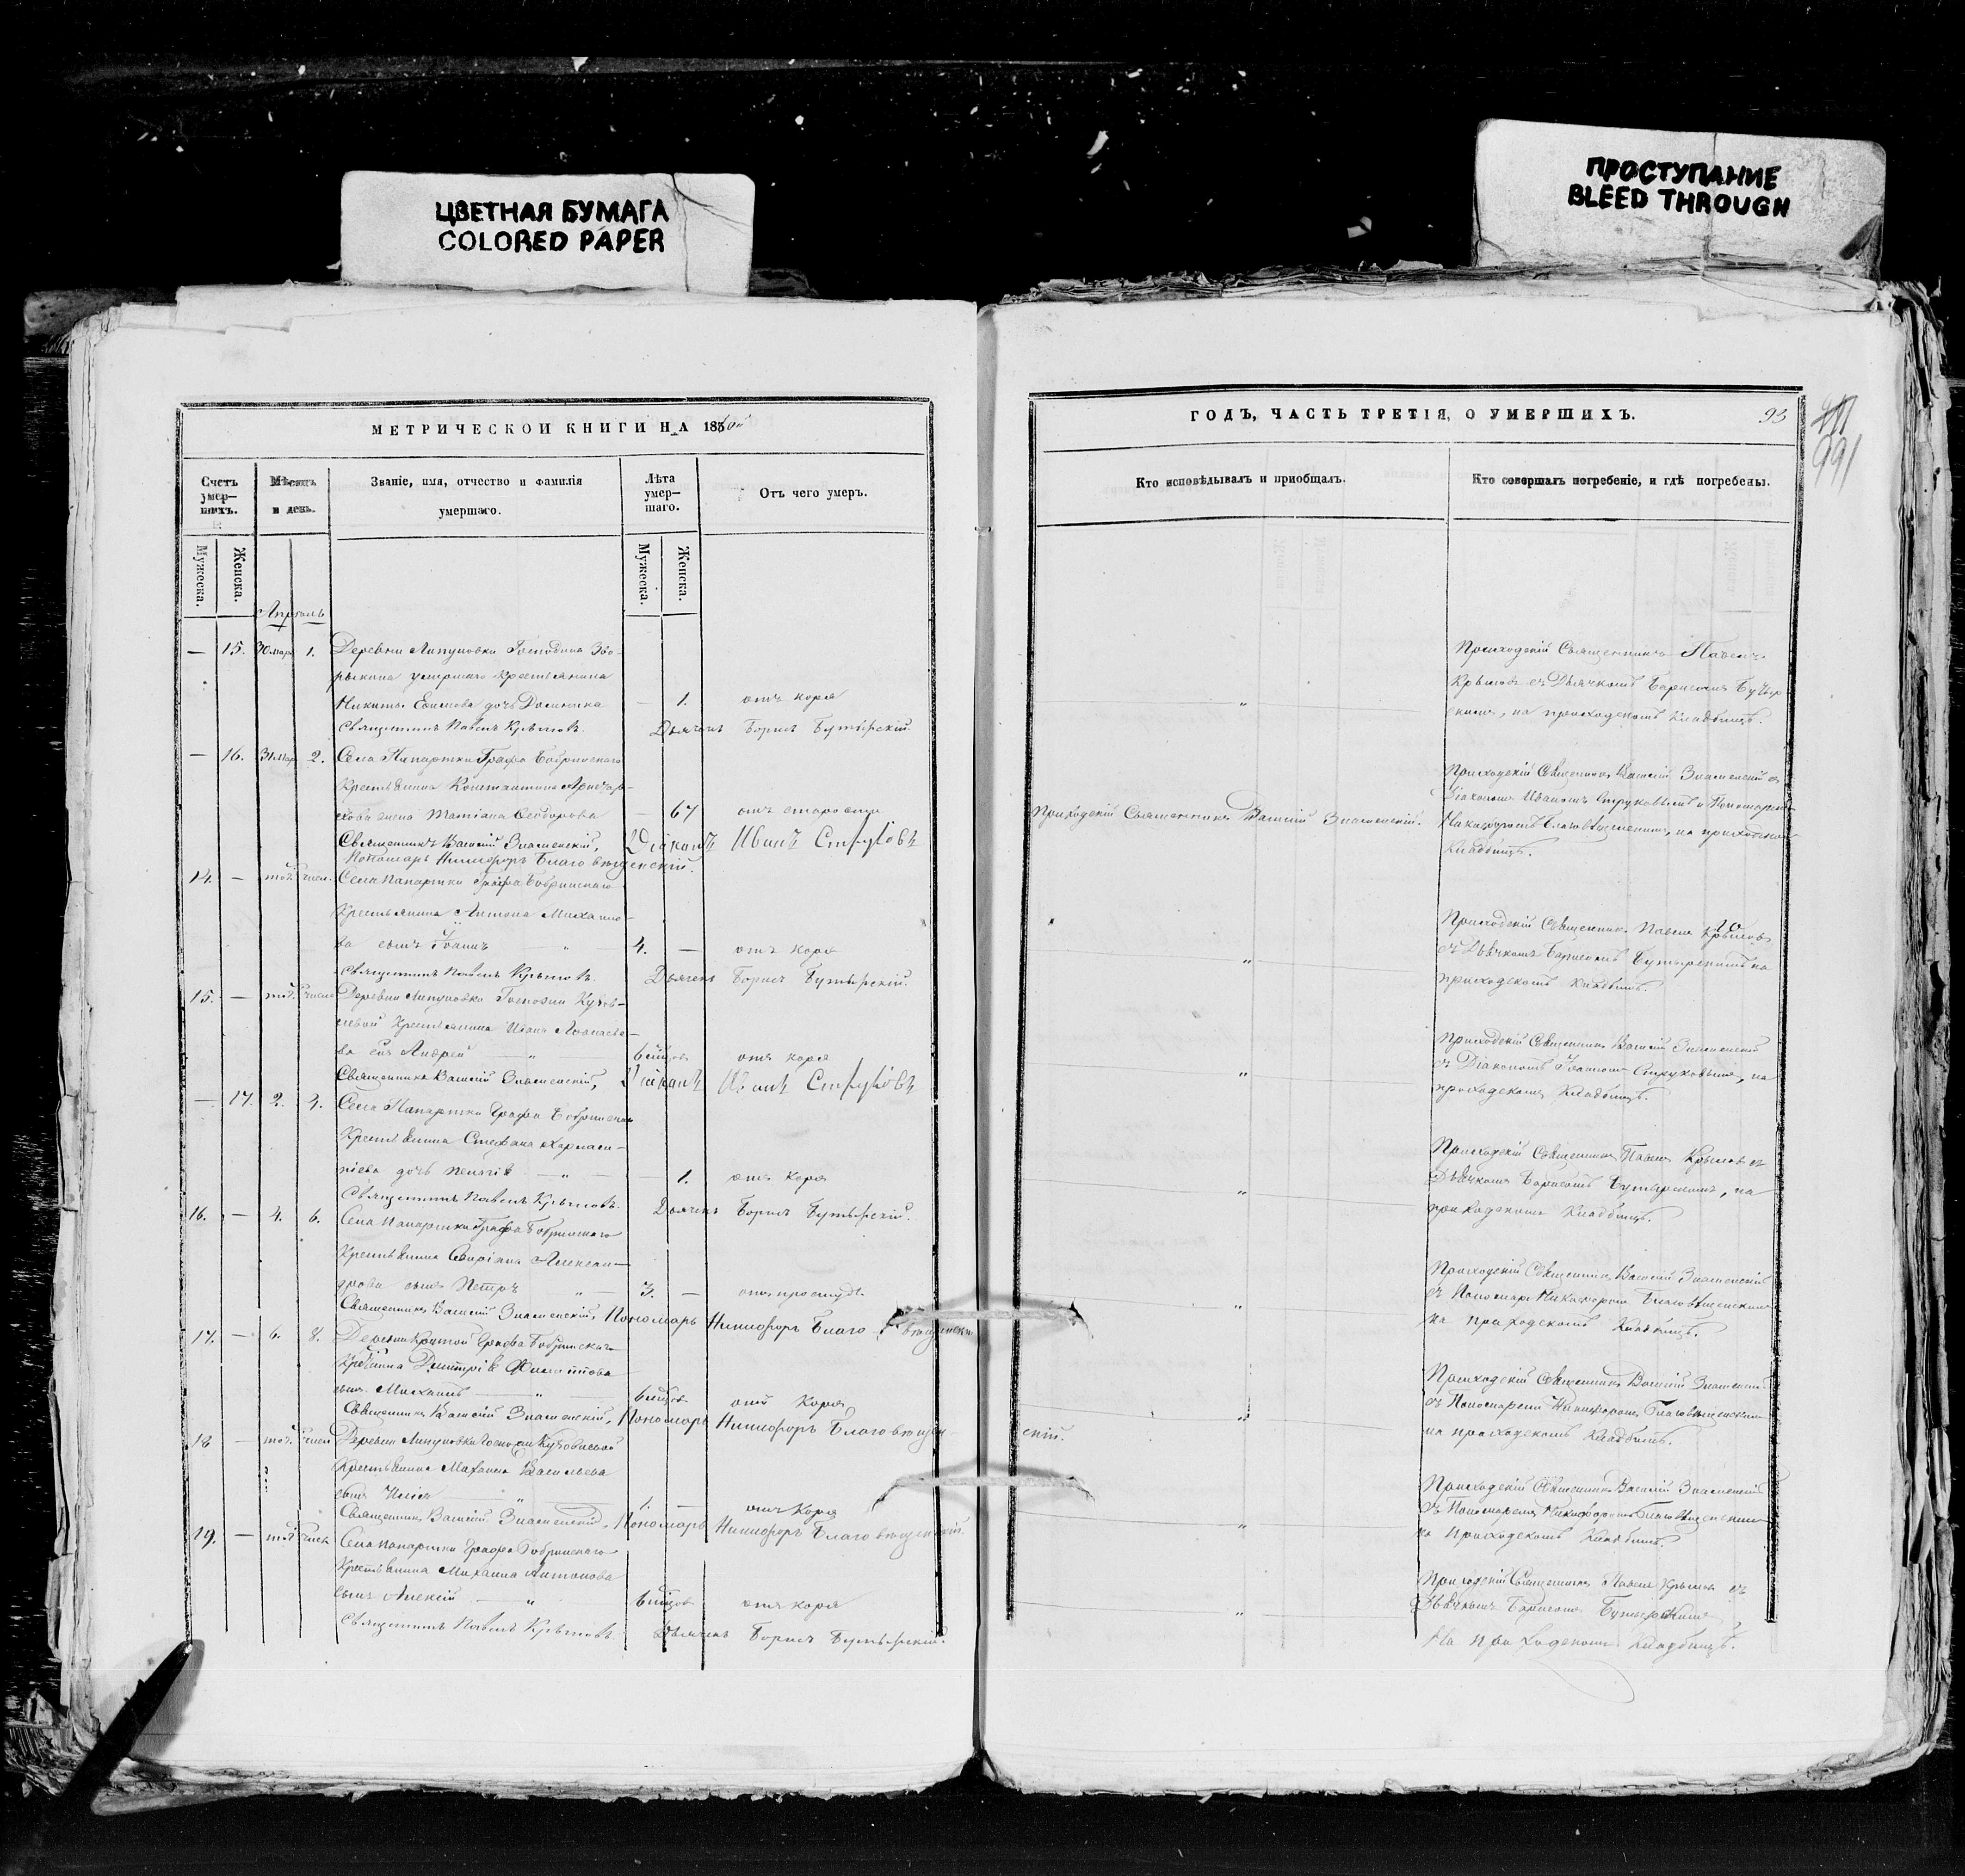 ЦВЕТНАЯ БУМАГА
COLORED PAPER
ПРОСТУПАНИЕ
BLEED THROUGH
МЕТРИЧЕСКОЙ КНИГИ НА 18
Счетъ умер—шихъ.
Мѣсяцъ и день.
Званіе, имя, отчество и фамилія умершаго.
Лѣта умер—шаго.
Отъ чего умеръ.
Мужеска.
Женска.
Мужеска.
Женска.
Апрѣль
— 15. 30 мар 1. Деревни Липуновки Господина Зво-
рыкина умершаго крестьянина
Никиты Ефимова дочь Домника — 1. отъ коря
Священникъ Павелъ Крыловъ. Дьячекъ Борисъ Бутырскій.
— 16. 31 мар 2. Села Папортки Графа Бобринскаго
Крестьянина Константина
жена Татіана Ѳеодорова — 67 отъ старости
Священникъ Василій Знаменскій, Діаконъ Иванъ Струковъ
Пономарь Никифоръ Благовѣщенскій.
14. — тогож числ. Села Папортки Графа Бобринскаго
Крестьянина Антона Михайло-
ва сынъ Іоаннъ — " — 4. — отъ коря
Священникъ Павелъ Крыловъ. Дьячекъ Борисъ Бутырскій.
15. — тогож числ Деревни Липуновки Госпожи
Крестьянина Ивана Аѳанасье-
ва сынъ Андрей — " — 6 мѣсяцов отъ коря
Священникъ Василій Знаменскій, Діаконъ Иванъ Струковъ
— 17. 2. 4. Села Папортки Графа Бобринскаго
Крестьянина Стефана
дочь Пелагія — " — 1. отъ коря
Священникъ Павелъ Крыловъ. Дьячекъ Борисъ Бутырскій.
16. — 4. 6. Села Папортки Графа Бобринскаго
Крестьянина Алексан-
дрова сынъ Петръ " — 3. — отъ простуды
Священникъ Василій Знаменскій, Пономарь Никифоръ Благовѣщенскій
17. — 6. 8. Деревни Крутой Графа Бобринскаго
Кресьянина Димитрія Филиппова
сынъ Михаилъ — " — 6 мѣсяцов отъ Коря
Священникъ Василій Знаменскій, Пономарь Никифоръ Благовѣщен-
скій.
18 — тогож числ Деревни Липуновки Госпожи
Крестьянина Михаила Васильева
сынъ Илія — " — 1. — отъ Коря
Священникъ Василій Знаменскій, Пономарь Никифоръ Благовѣщенскій.
19. — тогож числ. Села Папортки Графа Бобринскаго
Крестьянина Михаила Антонова
сынъ Алексій — " — 6 мѣсяцов отъ коря
Священникъ Павелъ Крыловъ. Дьячекъ Борисъ Бутырскій.
ГОДЪ, ЧАСТЬ ТРЕТІЯ, О УМЕРШИХЪ.
93
991
Кто исповѣдывалъ и пріобщалъ.
Кто совершалъ погребеніе, и гдѣ погребены.
Приходскій Священникъ Павелъ
Крыловъ съ Дьячкомъ Борисомъ Бутыр
скимъ, на приходскомъ кладбищѣ.
Приходскій Священникъ Василій Знаменскій.
Приходскій Священникъ Василій Знаменскій съ
Діакономъ Иваномъ Струковымъ и Пономаремъ
Никифоромъ Благовѣщенскимъ, на приходскомъ
Кладбищѣ.
Приходскій Священникъ Павелъ Крыловъ
съ Дьячкомъ Борисомъ Бутырскимъ на
приходскомъ кладбищѣ.
Приходскій Священникъ Василій Знаменскій
съ Діакономъ Іоанномъ Струковымъ, на
приходскомъ Кладбищѣ.
Приходскій Священникъ Павелъ Крыловъ съ
Дьячкомъ Борисомъ Бутырскимъ, на
приходскомъ Кладбищѣ.
Приходскій Священникъ Василій Знаменскій
съ Пономаремъ Никифоромъ Благовѣщенскимъ
на приходскомъ Кладбищѣ.
Приходскій Священникъ Василій Знаменскій
съ Пономаремъ Никифоромъ Благовѣщенскимъ
на приходскомъ Кладбищѣ.
Приходскій Священникъ Василій Знаменскій
съ Пономаремъ Никифоромъ Благовѣщенскимъ
на приходскомъ Кладбищѣ.
Приходскій Священникъ Павелъ Крыловъ съ
Дьячкомъ Борисомъ Бутырскимъ
На приходскомъ Кладбищѣ.